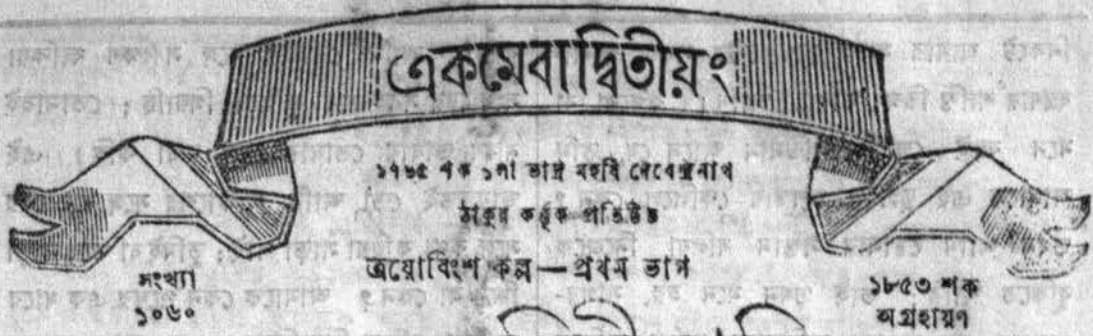 একমেবাদ্বিতীয়ং
১৭৬৫ শক ১লা ভাদ্র মহর্ষি দেবেন্দ্রনাথ
ঠাকুর কর্ত্তৃক প্রতিষ্ঠিত
ত্রয়োবিংশ কল্প—প্রথম ভাগ
সংখ্যা
১০৬০
১৮৫৩ শক
অগ্রহায়ণ